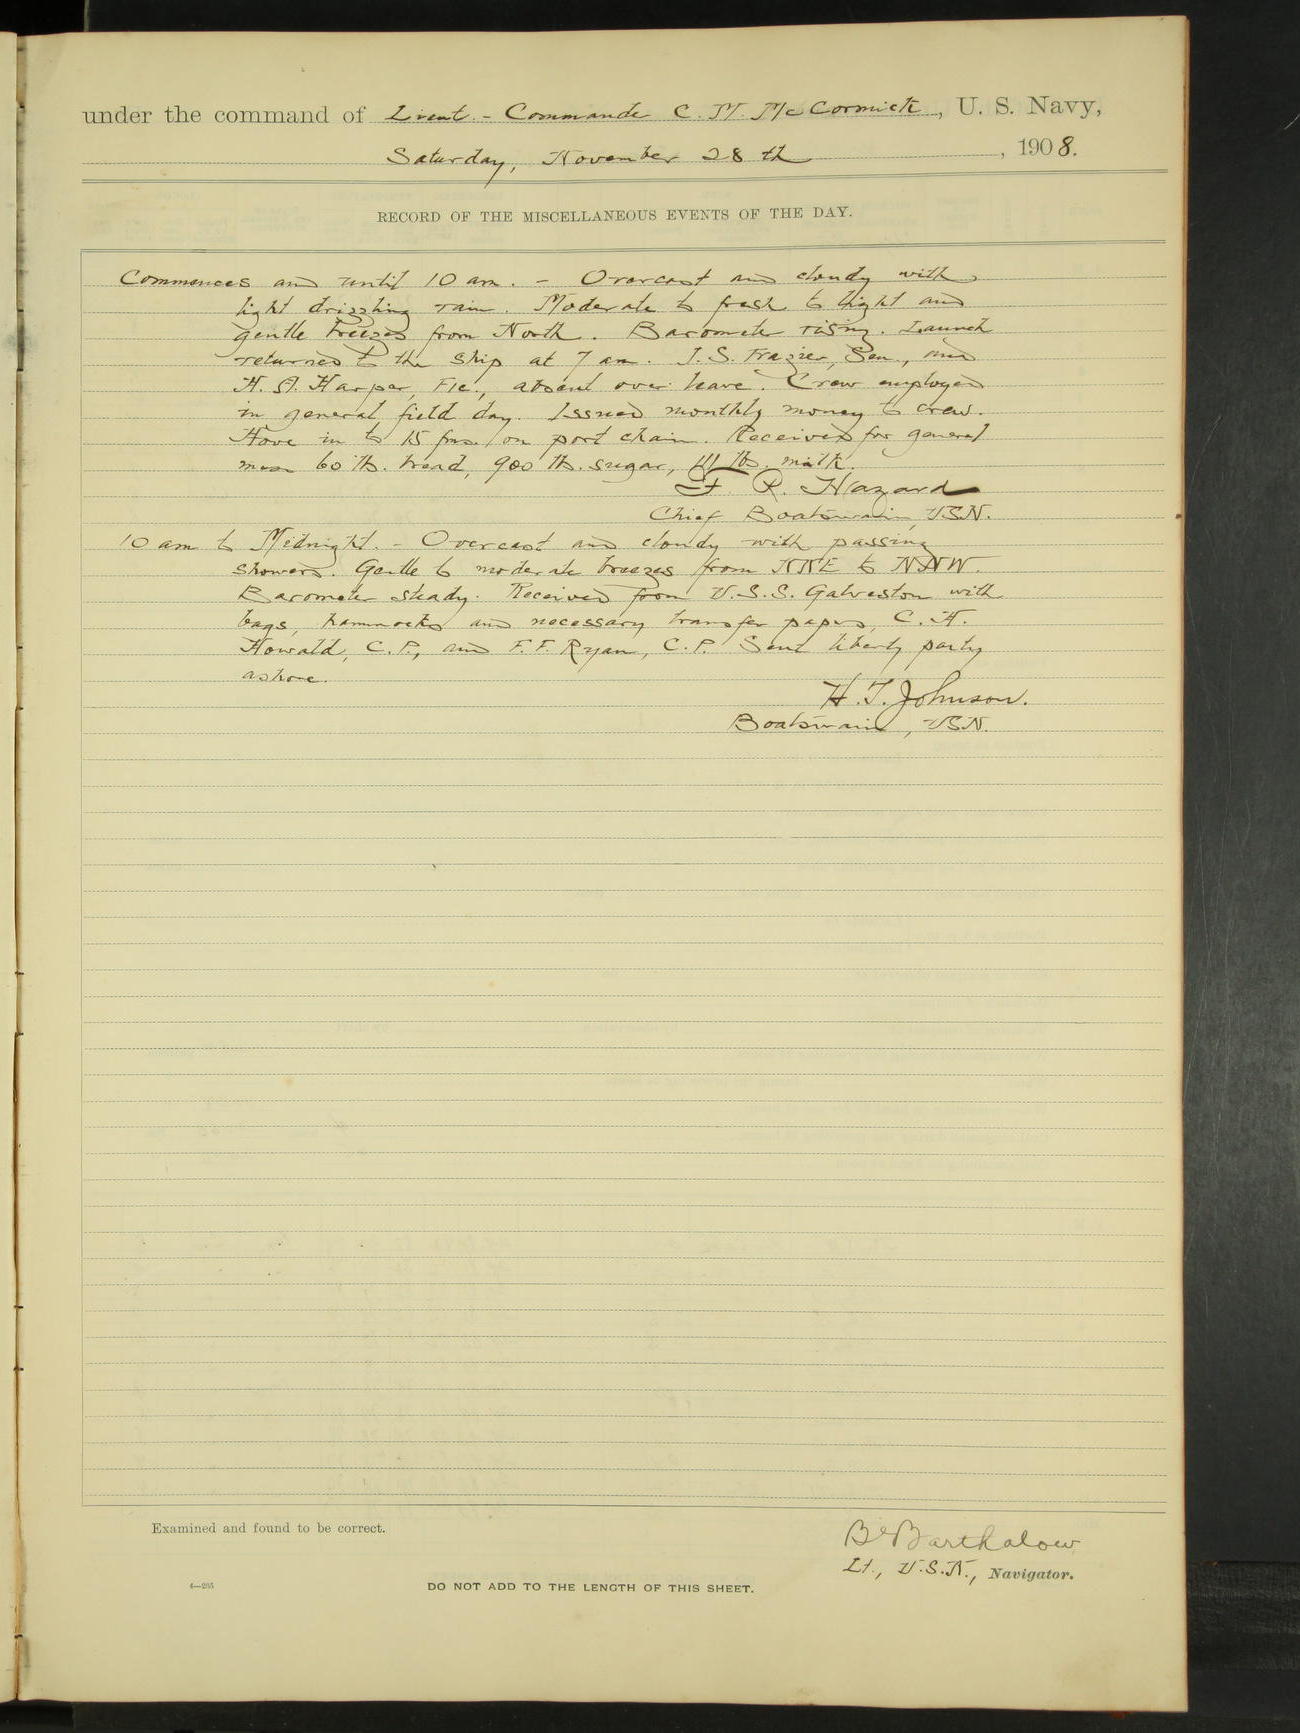 under the command of Lieut.-Commander C. M. McCormick, U. S. Navy,
Saturday, November 28th, 1908.
RECORD OF THE MISCELLANEOUS EVENTS OF THE DAY.
Commences and until 10 am. - Overcast and cloudy with
light drizzling rain. Moderate to fresh to light and
gentle breezes from North. Barometer rising. Launch
returned to the ship at 7 am. J. S. Frazier, Sea., and
H. A. Harper, F1c., absent over leave. Crew employed
in general field day. Issued monthly money to crew.
Hove in to 15 fms. on port chain. Received for general
mess 60 lb. bread, 900 lb. sugar, lbs. milk.
F. R. Hazard
Chief Boatswain, USN.
10 am to Midnight. - Overcast and cloudy with passing
showers. Gentle to moderate breezes from NNE to NNW.
Barometer steady. Received from U.S.S. Galveston with
bags, hammocks and necessary transfer papers, C. H.
Howald, C.P., and F. F. Ryan, C.P. Sent liberty party
ashore.
H. T. Johnson.
Boatswain, USN.
Examined and found to be correct.
Barthalow
Lt., U.S.N., Navigator.
4—205
DO NOT ADD TO THE LENGTH OF THIS SHEET.